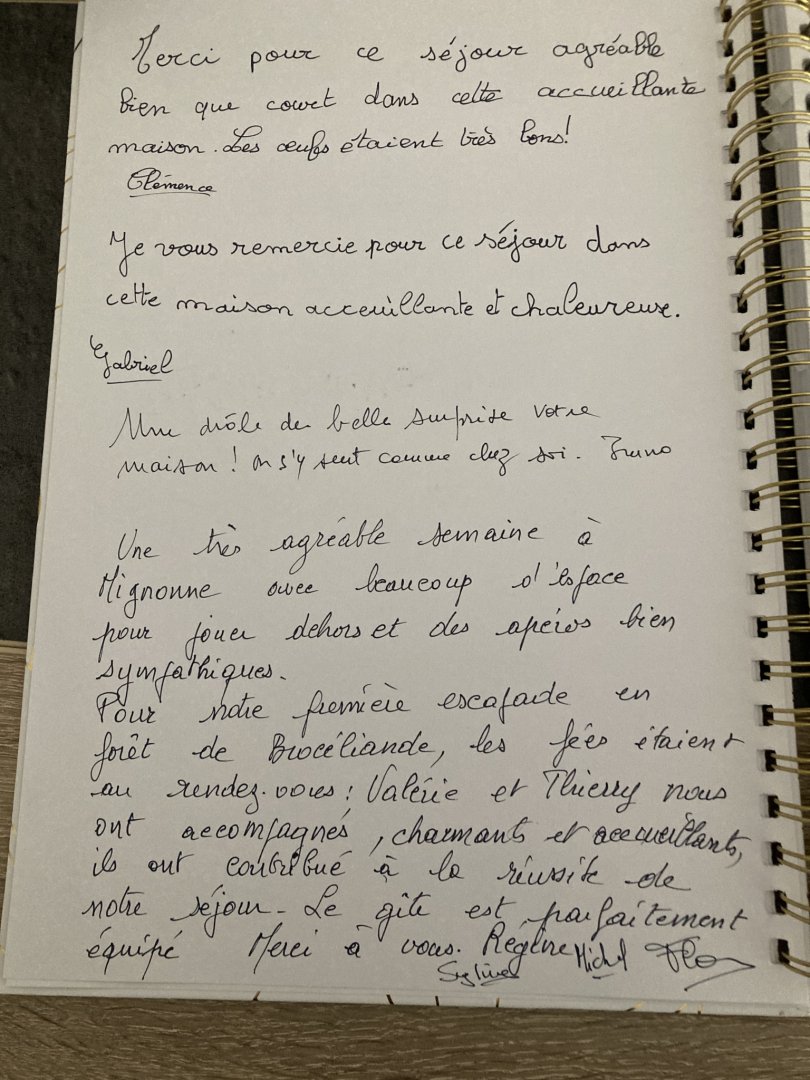 Merci pour ce séjour agréable
bien que court dans cette accueillante
maison. Les œufs étaient très bons!
Clémence
Je vous remercie pour ce séjour dans
cette maison acceuillante et chaleureuse.
Gabriel
Une drôle de belle surprise votre
maison ! on s'y sent comme chez soi.
Une très agréable semaine à
Mignonne avec beaucoup d'espace
pour jouer dehors et des apéros bien
sympathiques.
Pour notre première escapade en
forêt de Brocéliande, les fées étaient
au rendez-vous : Valérie et Thierry nous
ont accompagnés, charmants et accueillants,
ils ont contribué à la réussite de
notre séjour - Le gîte est parfaitement
équipé Merci à vous. Régine Michel